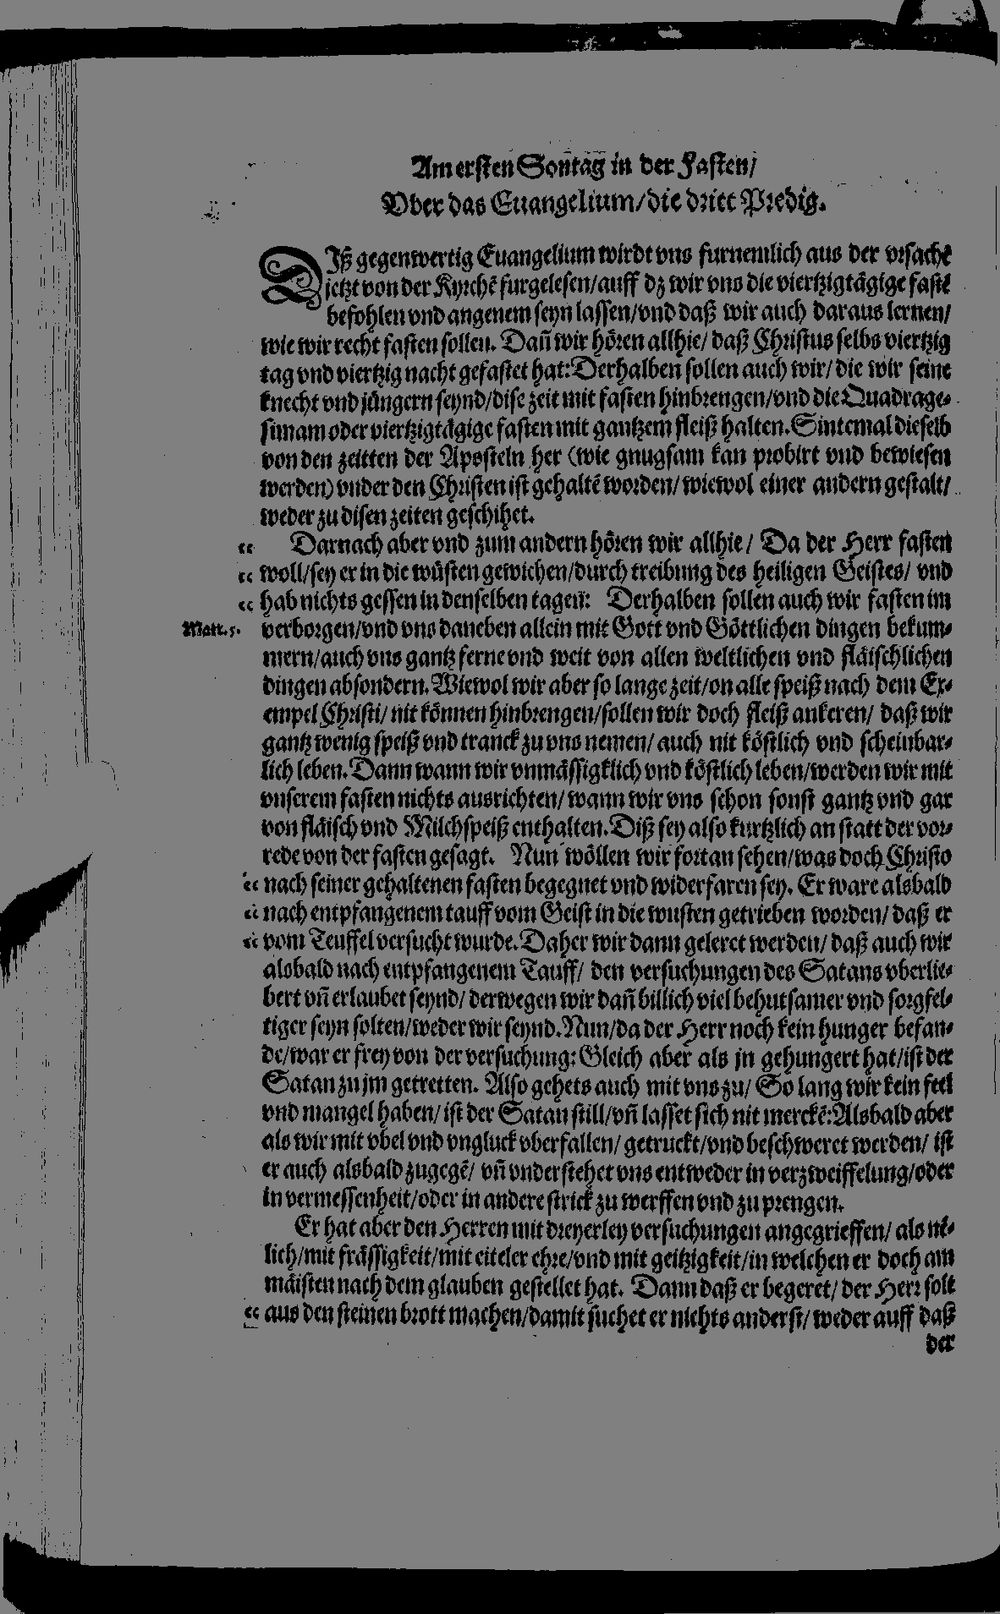 Am ersten Sontag in der Fasten/
Vber das Euangelium/die dritt Predig.
DIß gegenwertig Euangelium wirdt vns furnemlich aus der vrsachē
jetzt von der Kyrchē furgelesen/auff dz wir vns die viertzigtägige fastē
befohlen vnd angenem seyn lassen/vnd daß wir auch daraus lernen/
wie wir recht fasten sollen. Dañ wir hören allhie/ daß Christus selbs viertzig
tag vnd viertzig nacht gefastet hat: Derhalben sollen auch wir/ die wir seine
knecht vnd jüngern seynd/dise zeit mit fasten hinbrengen/vnd die Quadrage-
simam oder viertzigtägige fasten mit gantzem fleiß halten. Sintemal dieselb
von den zeitten der Aposteln her (wie gnugsam kan probirt vnd bewiesen
werden) vnder den Christen ist gehaltē worden/ wiewol einer andern gestalt/
weder zu disen zeiten geschihet.
Darnach aber vnd zum andern hören wir allhie/ Da der Herr fasten
woll/sey er in die wüsten gewichen/durch treibung des heiligen Geistes/ vnd
hab nichts gessen in denselben tagen: Derhalben sollen auch wir fasten im
Matt. 5. verborgen/vnd vns daneben allein mit Gott vnd Göttlichen dingen bekum-
mern/auch vns gantz ferne vnd weit von allen weltlichen vnd fläischlichen
dingen absondern. Wiewol wir aber so lange zeit/on alle speiß nach dem Ex-
empel Christi/ nit können hinbrengen/sollen wir doch fleiß ankeren/ daß wir
gantz wenig speiß vnd tranck zu vns nemen/ auch nit köstlich vnd scheinbar-
lich leben. Dann wann wir vnmässigklich vnd köstlich leben/werden wir mit
vnserem fasten nichts ausrichten/ wann wir vns schon sonst gantz vnd gar
von fläisch vnd Milchspeiß enthalten. Diß sey also kurtzlich an statt der vor-
rede von der fasten gesagt. Nun wöllen wir fortan sehen/was doch Christo
nach seiner gehaltenen fasten begegnet vnd widerfaren sey. Er ware alsbald
nach entpfangenem tauff vom Geist in die wusten getrieben worden/ daß er
vom Teuffel versucht wurde. Daher wir dann geleret werden/ daß auch wir
alsbald nach entpfangenem Tauff/ den versuchungen des Satans vberlie-
bert vñ erlaubet seynd/ derwegen wir dañ billich viel behutsamer vnd sorgfel-
tiger seyn solten/weder wir seynd. Nun/da der Herr noch kein hunger befan-
de/war er frey von der versuchung: Gleich aber als jn gehungert hat/ist der
Satan zu jm getretten. Also gehets auch mit vns zu/ So lang wir kein feel
vnd mangel haben/ ist der Satan still/vñ lasset sich nit merckē: Alsbald aber
als wir mit vbel vnd vngluck vberfallen/ getruckt/vnd beschweret werden/ ist
er auch alsbald zugegē/ vñ vnderstehet vns entweder in verzweiffelung/oder
in vermessenheit/oder in andere strick zu werffen vnd zu prengen.
Er hat aber den Herren mit dreyerley versuchungen angegrieffen/ als nē-
lich/mit frässigkeit/mit eiteler ehre/vnd mit geitzigkeit/in welchen er doch am
mäisten nach dem glauben gestellet hat. Dann daß er begeret/ der Herr solt
aus den steinen brott machen/damit suchet er nichts anderst/ weder auff daß
der